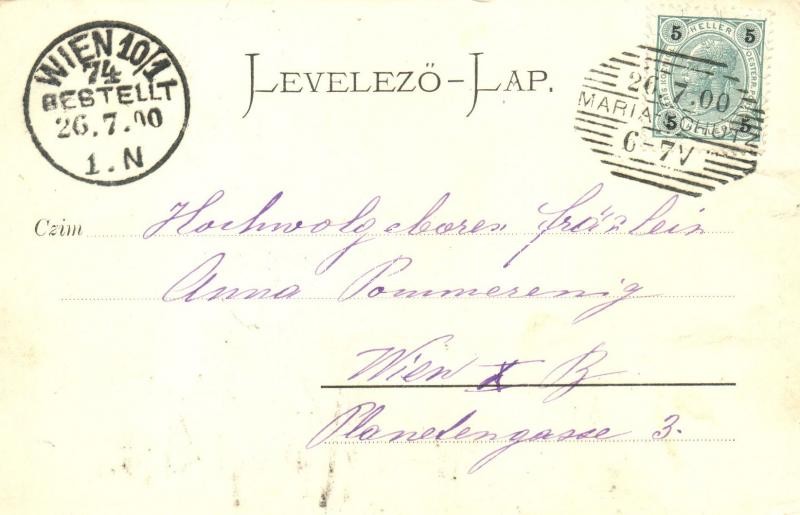 WIEN 10/1 t
74
BESTELLT
26.7.00
1.N
LEVELEZŐ-LAP.
5 HELLER 5
5 5
26.7.00
MARIA
6-7V
Czim Hochwolgeboren fräulein
Anna Pommerenig
Wien X B
Planetengasse 3.